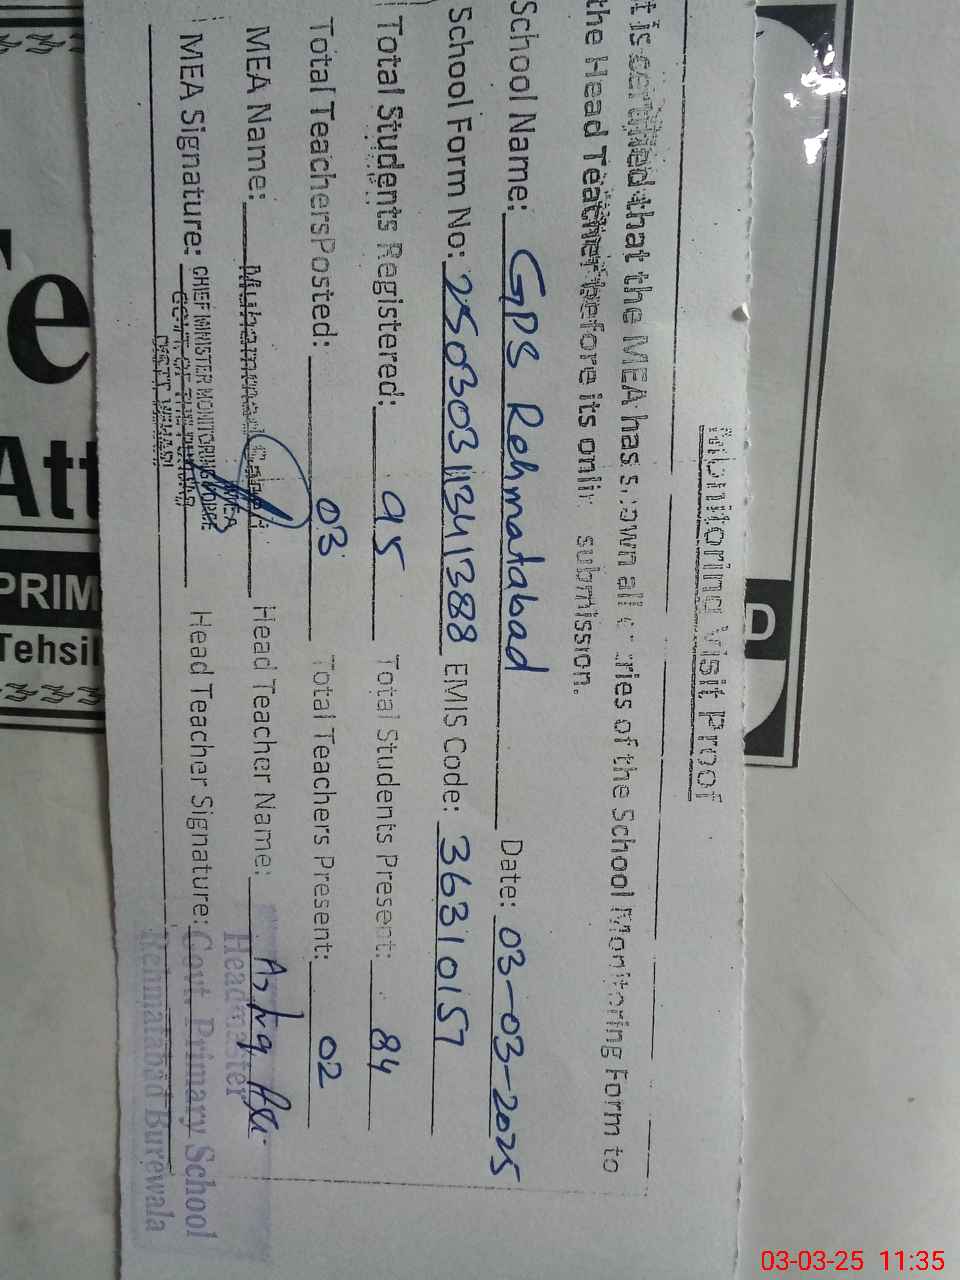 Monitoring Visit Proof
t is certified that the MEA has shown all entries of the School Monitoring Form to
the Head Teacher before its online submission.
School Name: GPS Rehmatabad Date: 03-03-2025
School Form No: 25030311341388 EMIS Code: 36310157
Total Students Registered: 95 Total Students Present: 84
Total Teachers Posted: 03 Total Teachers Present: 02
MEA Name: Muhammad Head Teacher Name:
MEA Signature: Head Teacher Signature:
MEA
CHIEF MINISTER MONITORING FORCE
GOVT. OF THE PUNJAB
DISTT. VEHARI
Headmaster
Govt. Primary School
Rehmatabad Burewala
Te
Att
PRIM
Tehsil
D
03-03-25 11:35